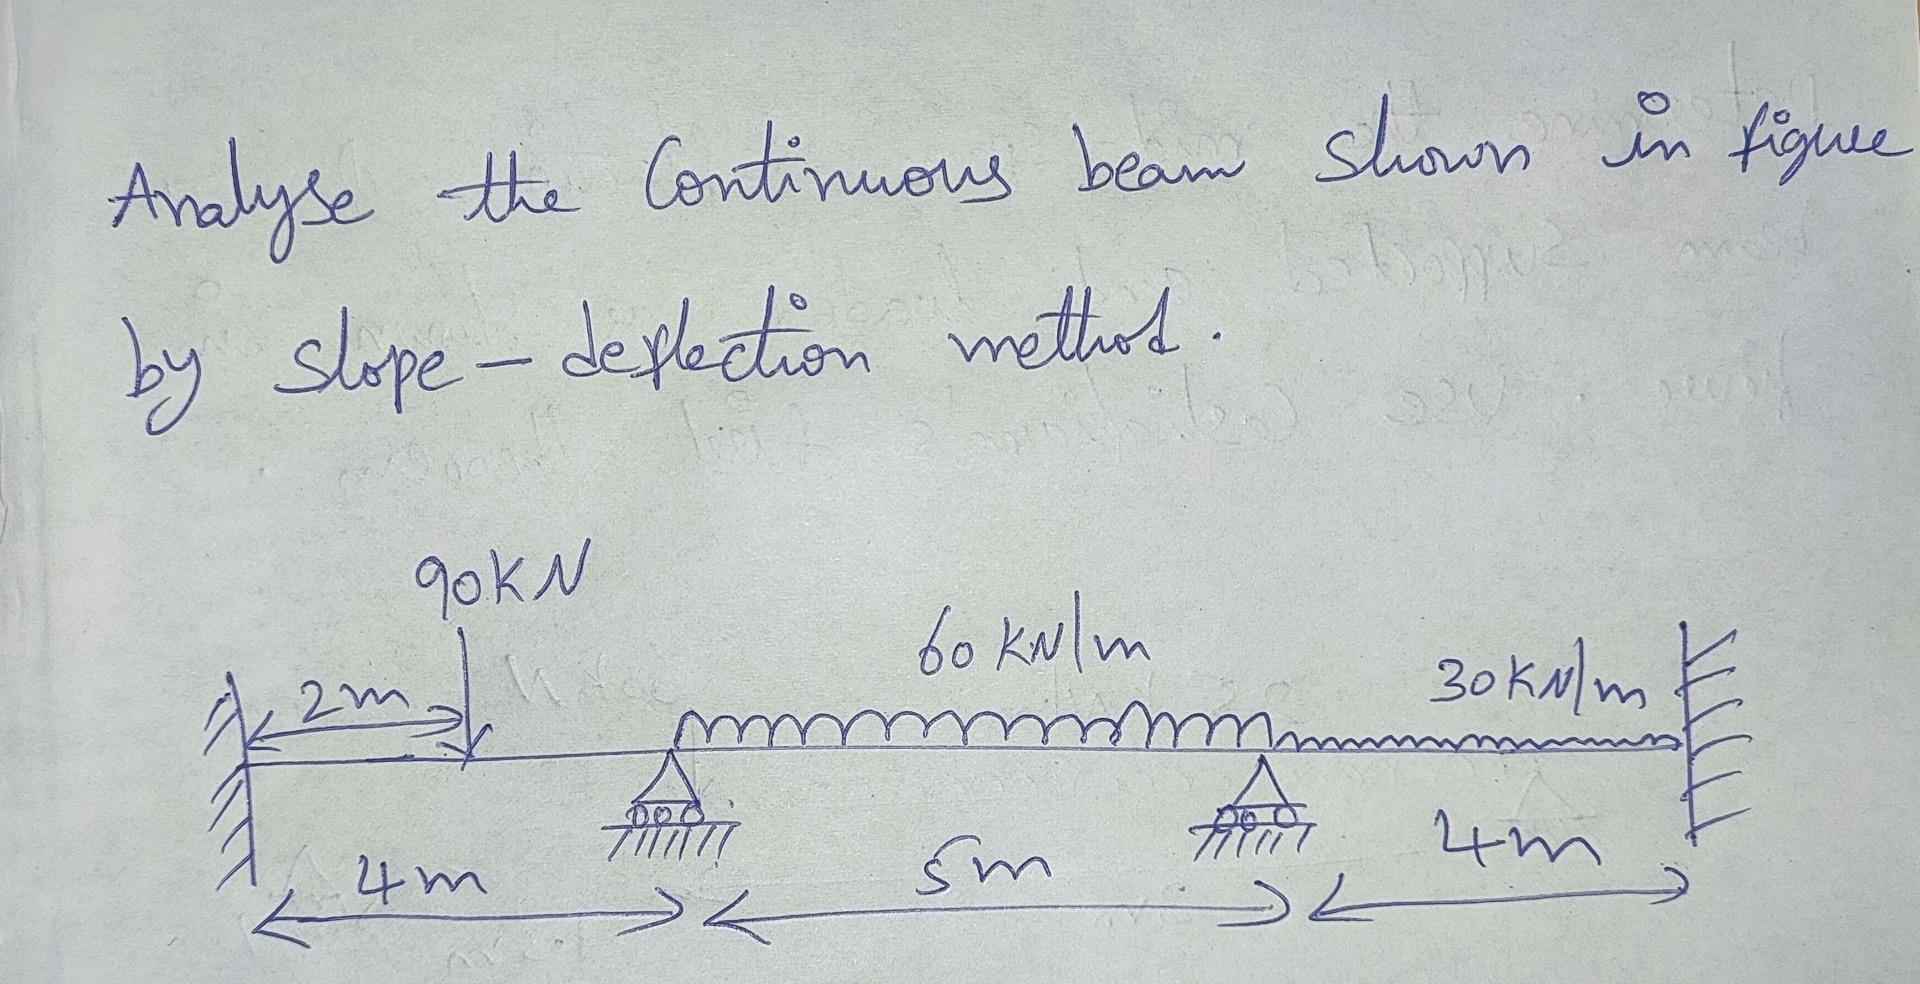 Analyse the Continuous beam shown in figure
by slope-deflection method.
90KN
60 KN/m
2m
30KN/m
4m
5m
4m